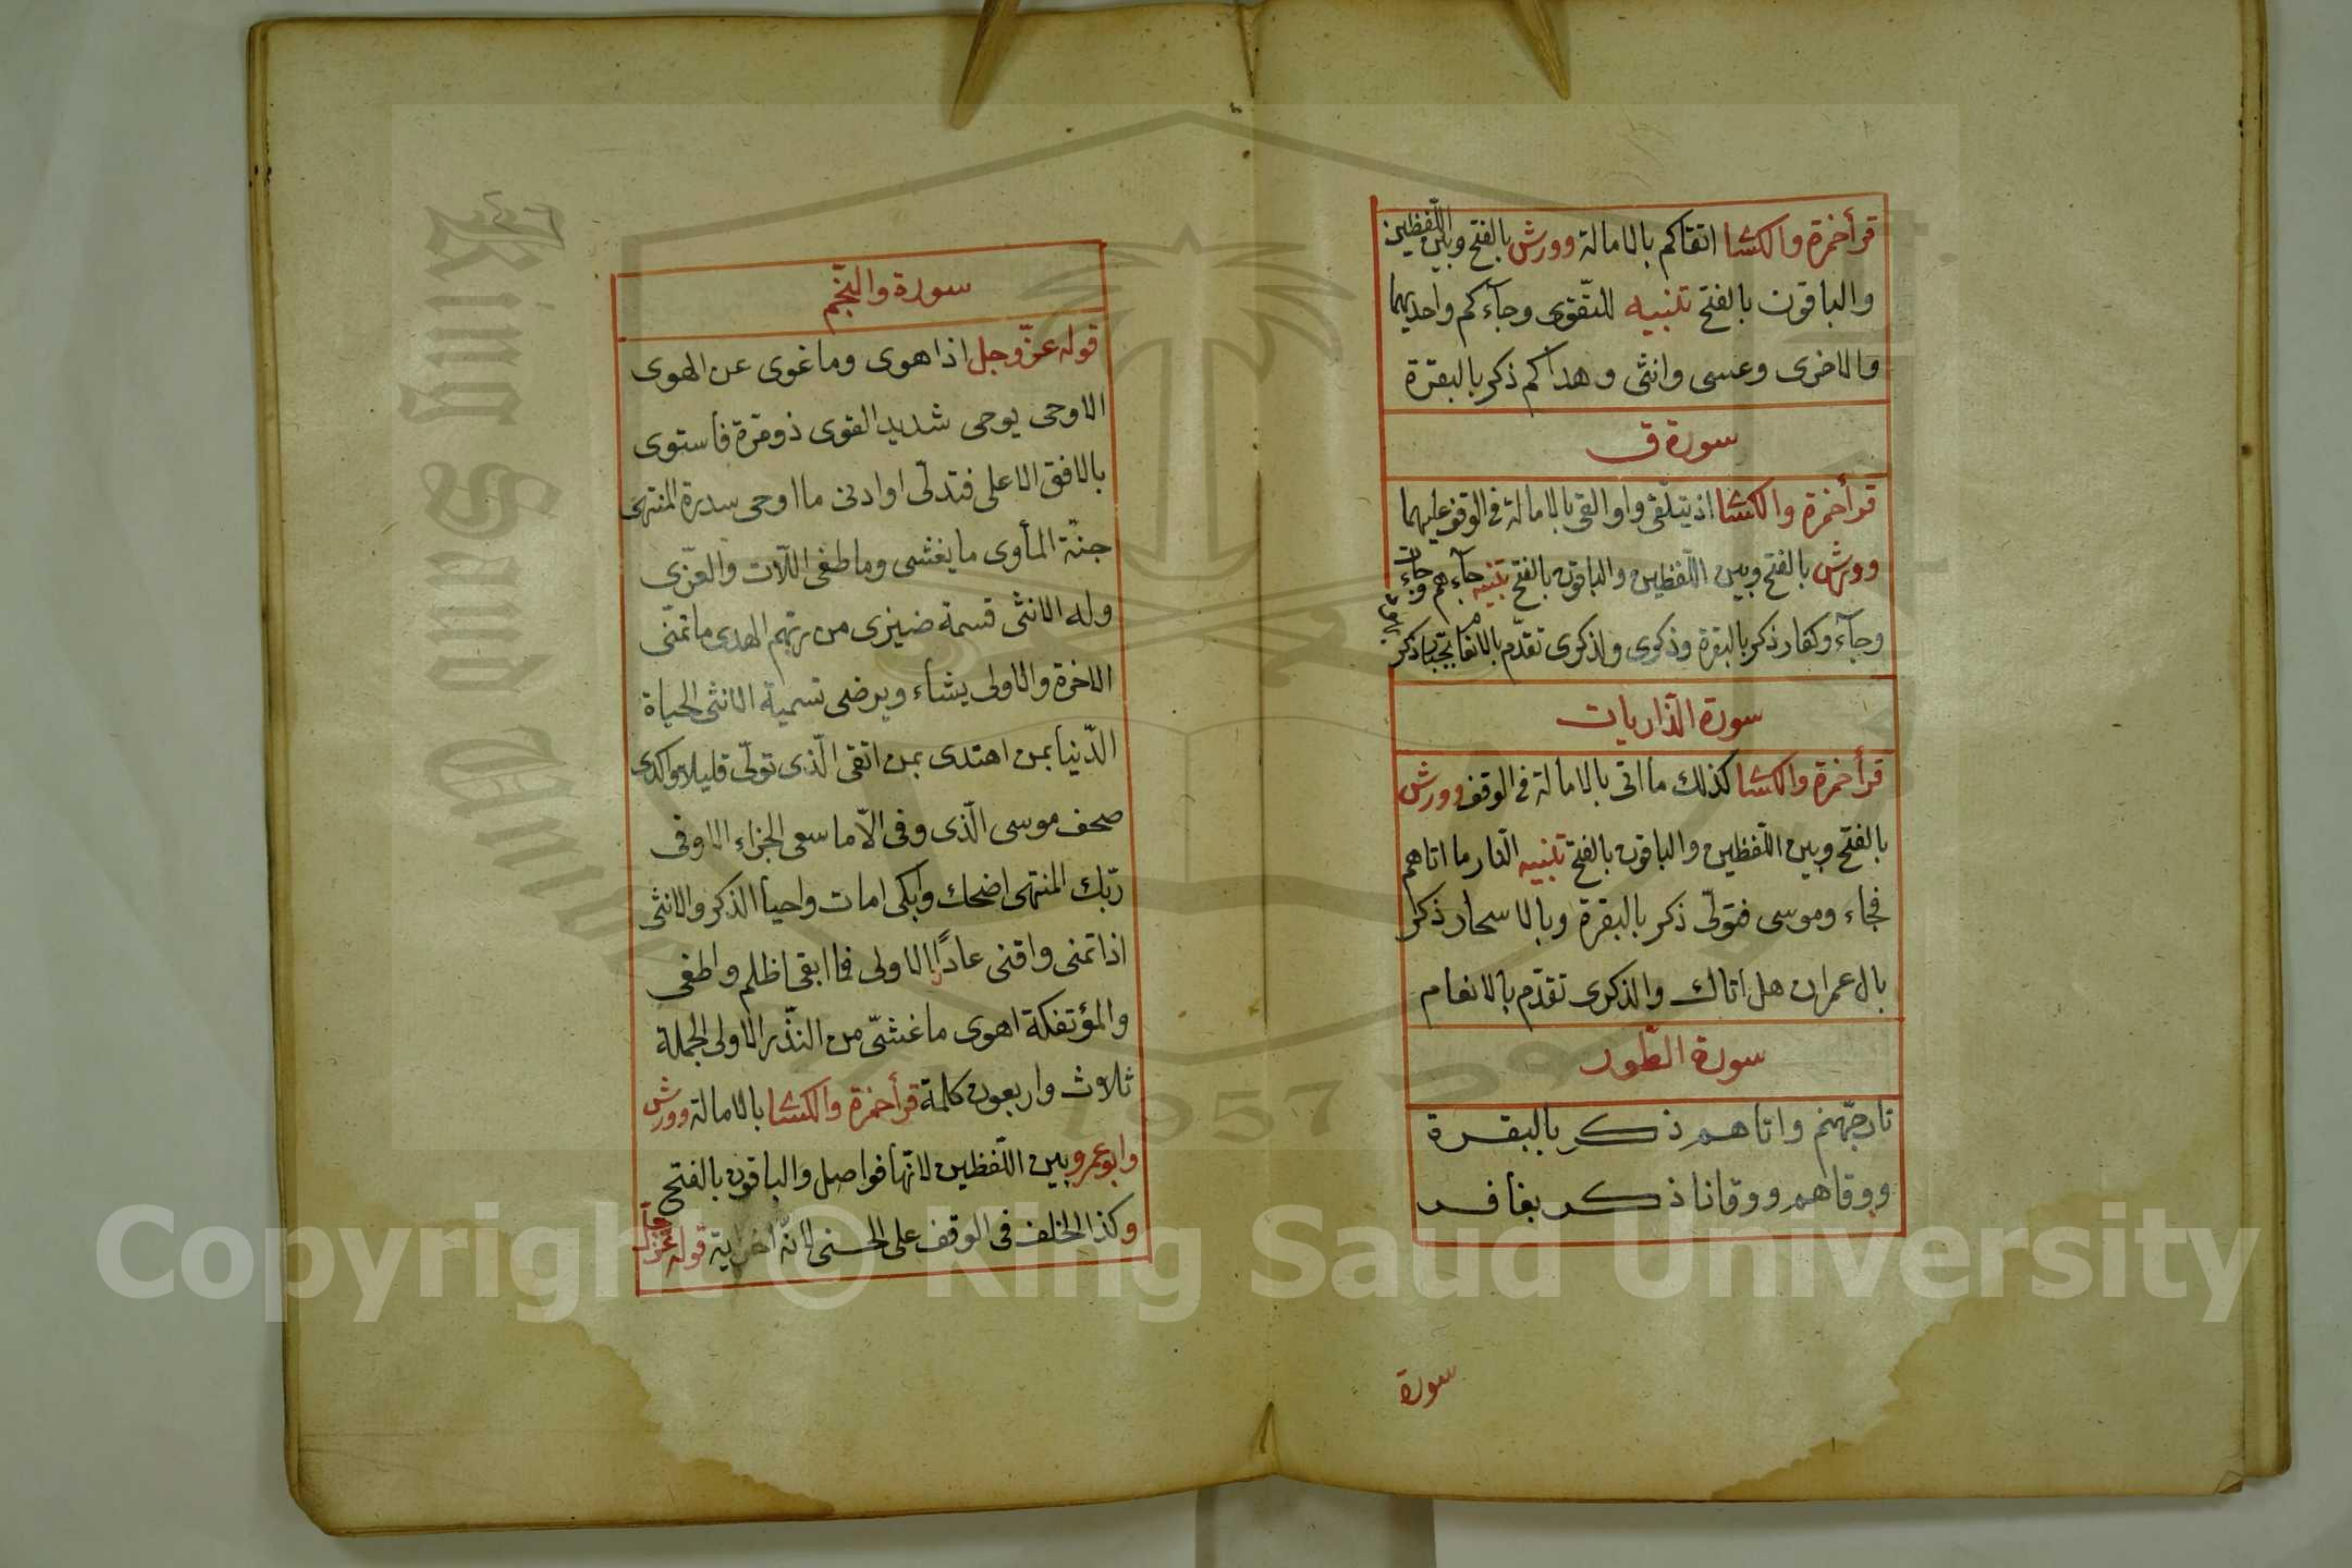 قرأ حمزة والكسا اتقاكم بالامالة وورش بالفتح وبين اللّفظين
والباقون بالفتح تنبيه للتّقوى وجآءكم واحديهما
والاخرى وعسى وانثى وهداكم ذكر بالبقرة
سورة ق
قرأ حمزة والكسا اذ يتلّقى واو القى بالامالة فى الوقف عليهما
وورش بالفتح وبين اللّفظين والباقون بالفتح تنبيه جآءهم وجآءت
وجآء وكفار ذكر بالبقرة وذكرى ولذكرى تقدّم بالانعام بجبار ذكر
سورة الذّاريات
قرأ حمزة والكسا كذلك ما اتى بالامالة فى الوقف وورش
بالفتح وبين اللّفظين والباقون بالفتح تنبيه النّار ما اتاهم
فجاء وموسى فتولّى ذكر بالبقرة وبالاسحار ذكر
بال عمران هل اتاك والذكرى تقدّم بالانعام
سورة الطّور
نار جهّنم واتاهم ذكر بالبقرة
ووقاهم ووقانا ذكر بغافر
سورة
سورة والنّجم
قوله عزّ وجل اذا هوى وما غوى عن الهوى
الا وحى يوحى شديد القوى ذو مرّة فاستوى
بالافق الاعلى فتدلّى او ادنى ما اوحى سدرة المنتهى
جنّة المأوى ما يغشى وما طغى اللّات والعزّى
وله الانثى قسمة ضيزى من ربّهم الهدى ما تمنّى
الاخرة والاولى يشاء ويرضى تسمية الانثى الحياة
الدّنيا بمن اهتدى بمن اتقى الّذى تولّى قليلا واكدى
صحف موسى الّذى وفى الّا ما سعى الجزاء الاوفى
ربّك المنتهى اضحك وابكى امات واحيا الذكر والانثى
اذا تمنى واقنى عادًا الاولى فما ابقى اظلم واطغى
والمؤتفكة اهوى ما غشىّ من النّذر الاولى الجملة
ثلاث واربعون كلمة قرأ حمزة والكسا بالامالة وورش
وابو عمرو بين اللّفظين لانّها فواصل والباقون بالفتح
وكذا الخلف فى الوقف على الحسنى لانّه اخر اية قوله عزّ
King Saud University
1957
Copyright © King Saud University